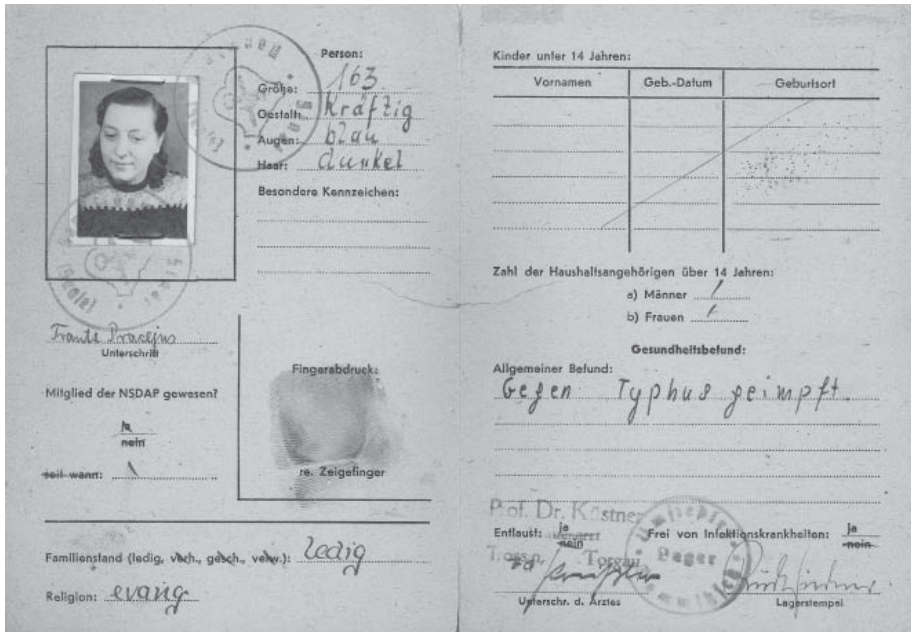 Person:
Größe: 163
Gestalt: kräftig
Augen: blau
Haar: dunkel
Besondere Kennzeichen:
Unterschrift
Mitglied der NSDAP gewesen?
ja
nein
seit wann:
Fingerabdruck:
re. Zeigefinger
Familienstand (ledig, verh., gesch., verw.): ledig
Religion: evang
Kinder unter 14 Jahren:
Vornamen Geb.-Datum Geburtsort
Zahl der Haushaltsangehörigen über 14 Jahren:
a) Männer /
b) Frauen /
Gesundheitsbefund:
Allgemeiner Befund:
Gegen Typhus geimpft.
Prof. Dr. Küstner
Entlaust: ja
nein
Frei von Infektionskrankheiten: ja
nein
Torgau
Lager
Unterschr. d. Arztes
Lagerstempel